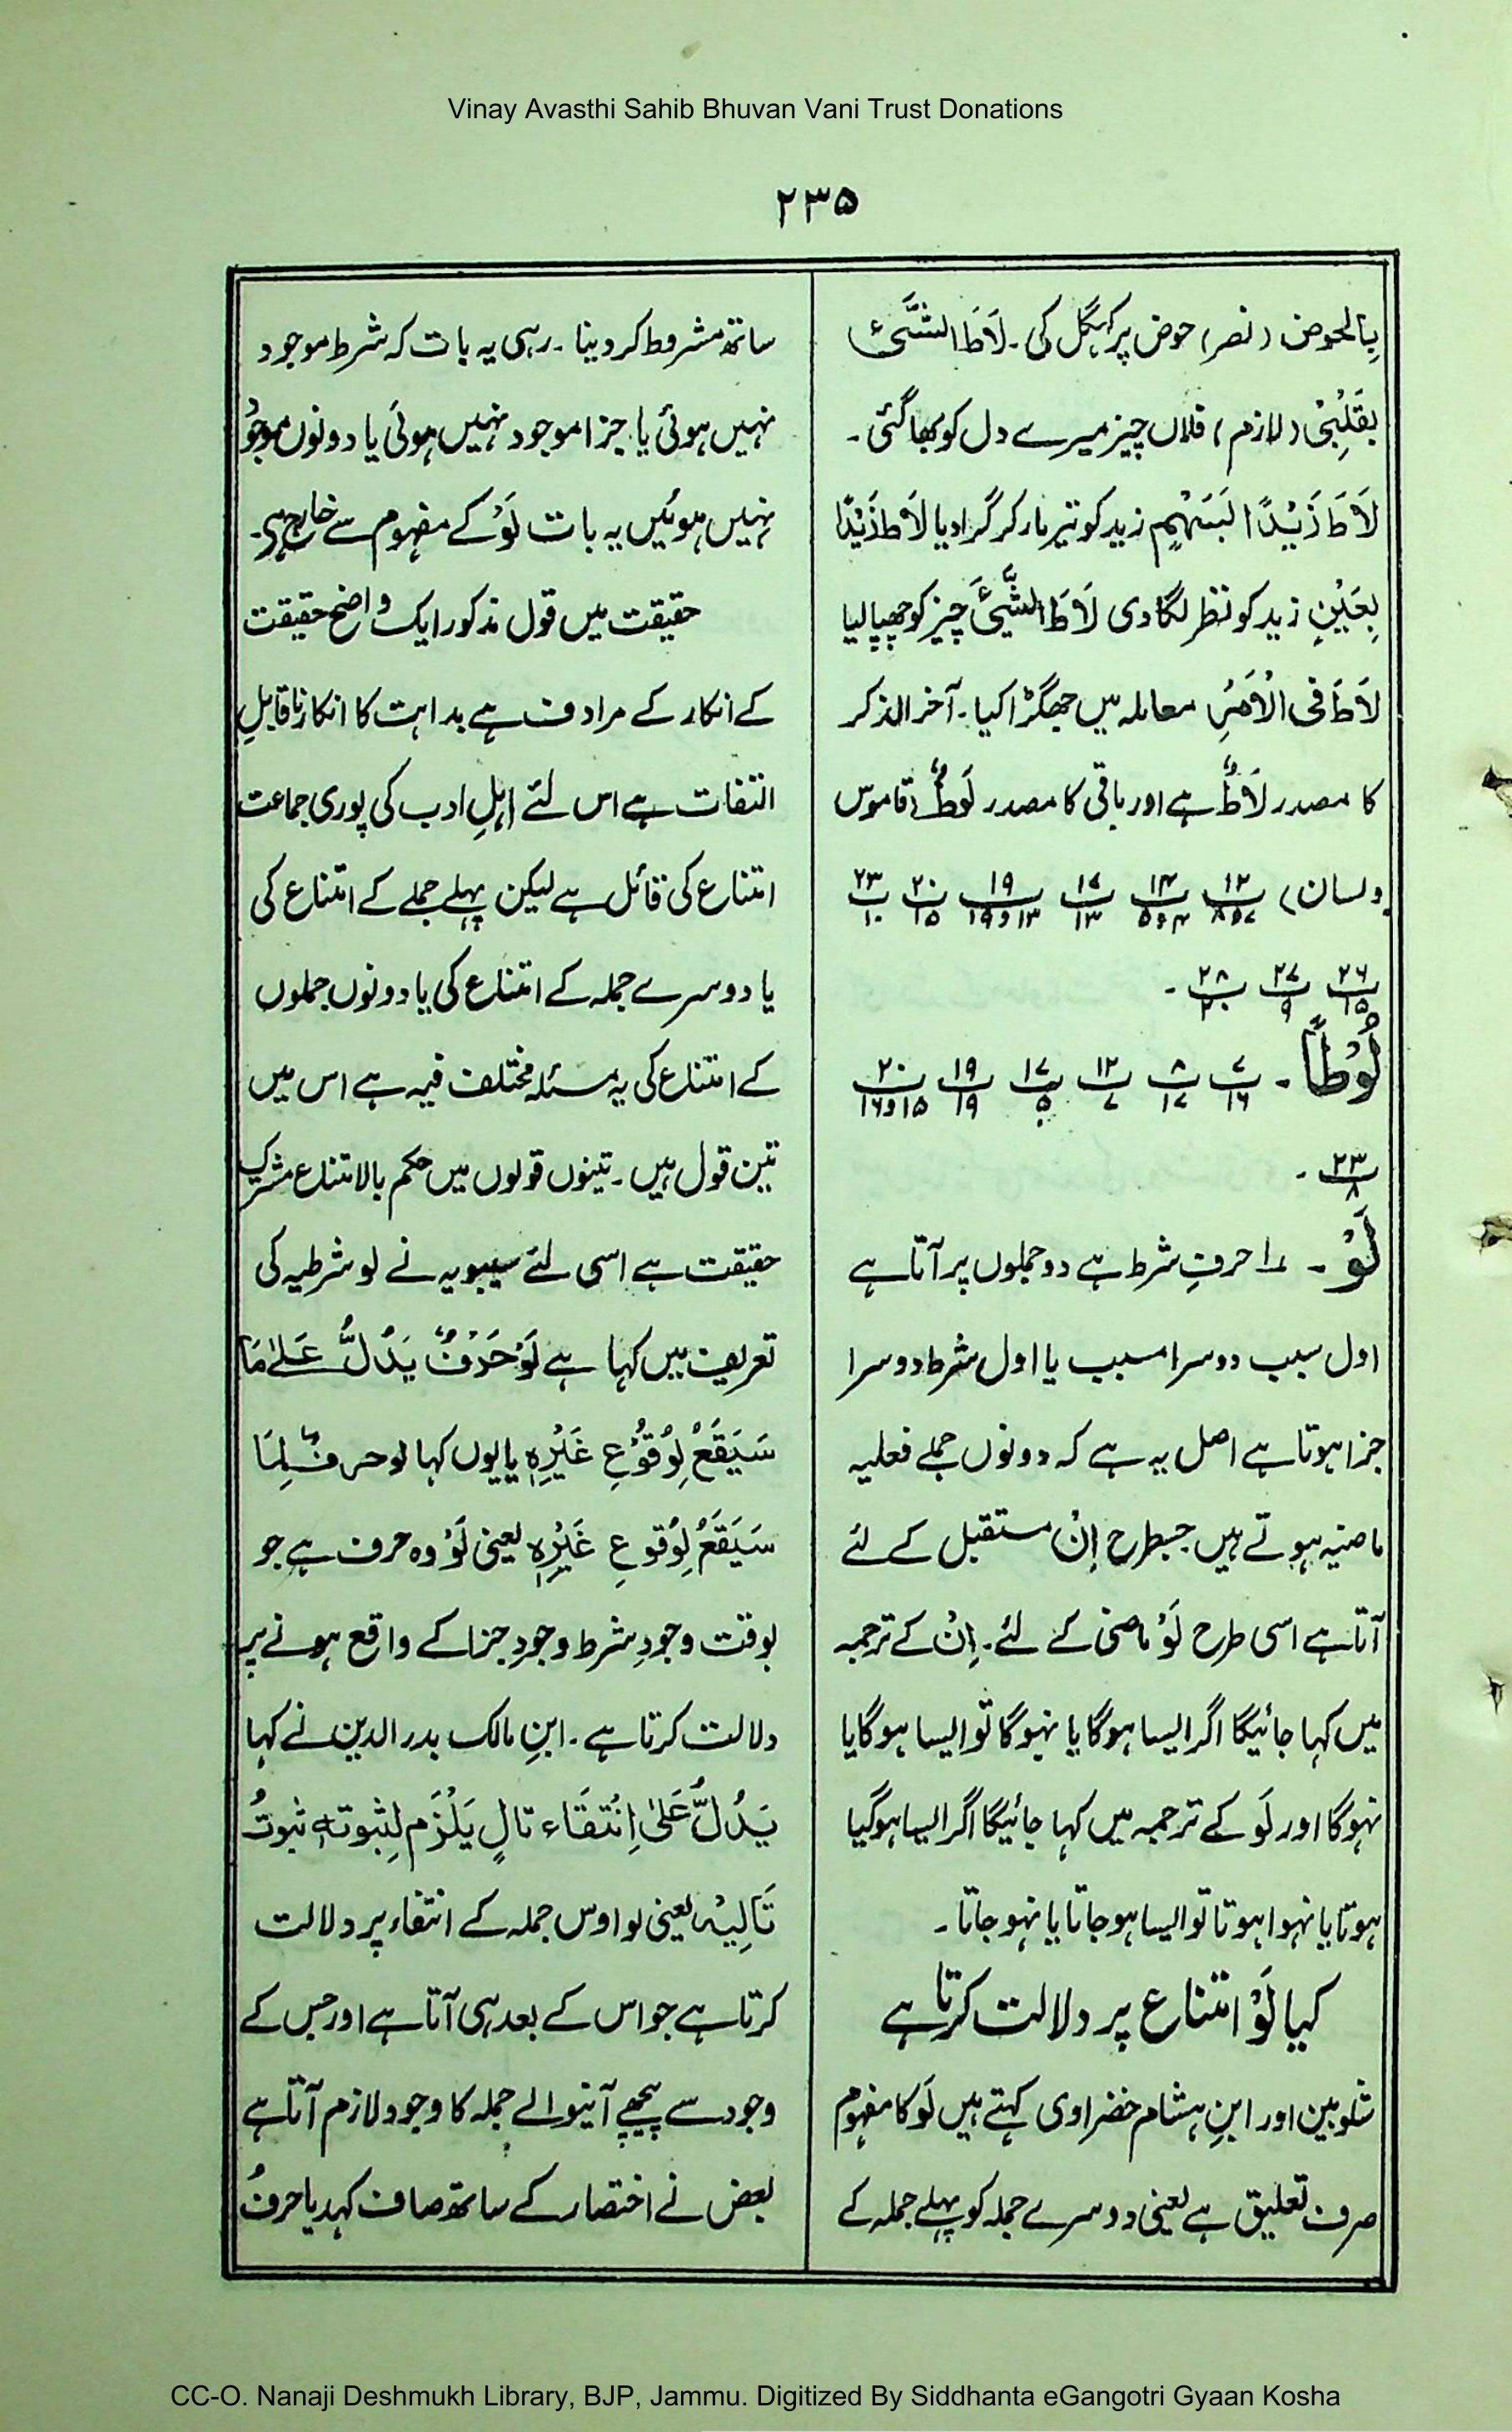 Vinay Avasthi Sahib Bhuvan Vani Trust Donations
۲۳۵
بِالحوض (نصر) حوض پر کہگل کی۔ لَاطَ الشَّئُ
بِقَلْبِیْ (لازم) فلاں چیز میرے دل کو بھا گئی۔
لَاطَ زَیْدًا بِسَہْمٍ زید کو تیر مار کر گرا دیا لَاطَ زَیْدًا
بِعَیْنٍ زید کو نظر لگا دی لَاطَ الشَّیْئَ چیز کو چھپا لیا
لَاطَ فی الْاَمْرِ معاملہ میں جھگڑا کیا۔ آخر الذکر
کا مصدر لَاطٌ ہے اور باقی کا مصدر لَوْطٌ (قاموس
ولسان) ۱۲/۷و۸ ۱۴/۴و۵ ۱۷/۱۳ ۱۹/۱۳و۱۹ ۲۰/۱۵ ۲۳/۱۰
۲۶/۱۵ ۲۷/۹ ۲۸/۲۰ ۔
لُوْطًا۔ ۷/۱۶ ۸/۱۷ ۱۲/۷ ۱۷/۵ ۱۹/۱۹ ۲۰/۱۵و۱۶
۲۳/۸ ۔
لَوْ۔ ۱ حرفِ شرط ہے دو جملوں پر آتا ہے
اول سبب دوسرا مسبب یا اول شرط دوسرا
جزا ہوتا ہے اصل یہ ہے کہ دونوں جملے فعلیہ
ماضیہ ہوتے ہیں جسطرح اِنْ مستقبل کے لئے
آتا ہے اسی طرح لَوْ ماضی کے لئے۔ اِنْ کے ترجمہ
میں کہا جائیگا اگر ایسا ہوگا یا نہوگا تو ایسا ہوگا یا
نہوگا اور لَو کے ترجمہ میں کہا جائیگا اگر ایسا ہوگیا
ہوتا یا نہوا ہوتا تو ایسا ہو جاتا یا نہو جاتا۔
کیا لَوْ امتناع پر دلالت کرتا ہے
شلوبین اور ابنِ ہشام خضراوی کہتے ہیں لَو کا مفہوم
صرف تعلیق ہے یعنی دوسرے جملہ کو پہلے جملہ کے
ساتھ مشروط کر دینا۔ رہی یہ بات کہ شرط موجود
نہیں ہوئی یا جزا موجود نہیں ہوئی یا دونوں موجود
نہیں ہوئیں یہ بات لَوْ کے مفہوم سے خارج ہی۔
حقیقت میں قول مذکور ایک واضح حقیقت
کے انکار کے مرادف ہے بداہت کا انکار ناقابلِ
التفات ہے اس لئے اہلِ ادب کی پوری جماعت
امتناع کی قائل ہے لیکن پہلے جملے کے امتناع کی
یا دوسرے جملہ کے امتناع کی یا دونوں جملوں
کے امتناع کی یہ مسئلہ مختلف فیہ ہے اس میں
تین قول ہیں۔ تینوں قولوں میں حکم بالامتناع مشترک
حقیقت ہے اسی لئے سیبویہ نے لو شرطیہ کی
تعریف میں کہا ہے لَوْ حَرْفٌ یَدُلُّ عَلیٰ مَا
سَیَقَعُ لِوُقُوْعِ غَیْرِہٖ یا یوں کہا لو حرفٌ لِمَا
سَیَقَعُ لِوُقوعِ غَیْرِہٖ یعنی لَوْ وہ حرف ہے جو
بوقت وجودِ شرط وجودِ جزا کے واقع ہونے پر
دلالت کرتا ہے۔ ابنِ مالک بدر الدین نے کہا
یَدُلُّ عَلیٰ اِنْتَفَاء تالٍ یَلْزَم لِثبوتہٖ ثبوتُ
تَالِیْہ یعنی لو اوس جملہ کے انتفاء پر دلالت
کرتا ہے جو اس کے بعد ہی آتا ہے اور جس کے
وجود سے پیچھے آنیوالے جملہ کا وجود لازم آتا ہے
بعض نے اختصار کے ساتھ صاف کہدیا حرفُ
CC-O. Nanaji Deshmukh Library, BJP, Jammu. Digitized By Siddhanta eGangotri Gyaan Kosha